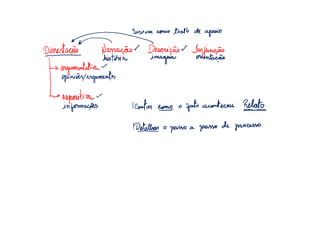 Servem como texto de apoio
Dissertação Narração ✓ Descrição ✓ Injunção
história imagem orientação
argumentativa ✓
opiniões/argumentos
expositiva ✓
informações
!Contar como o fato aconteceu Relato
!Detalhar o passo a passo de processo